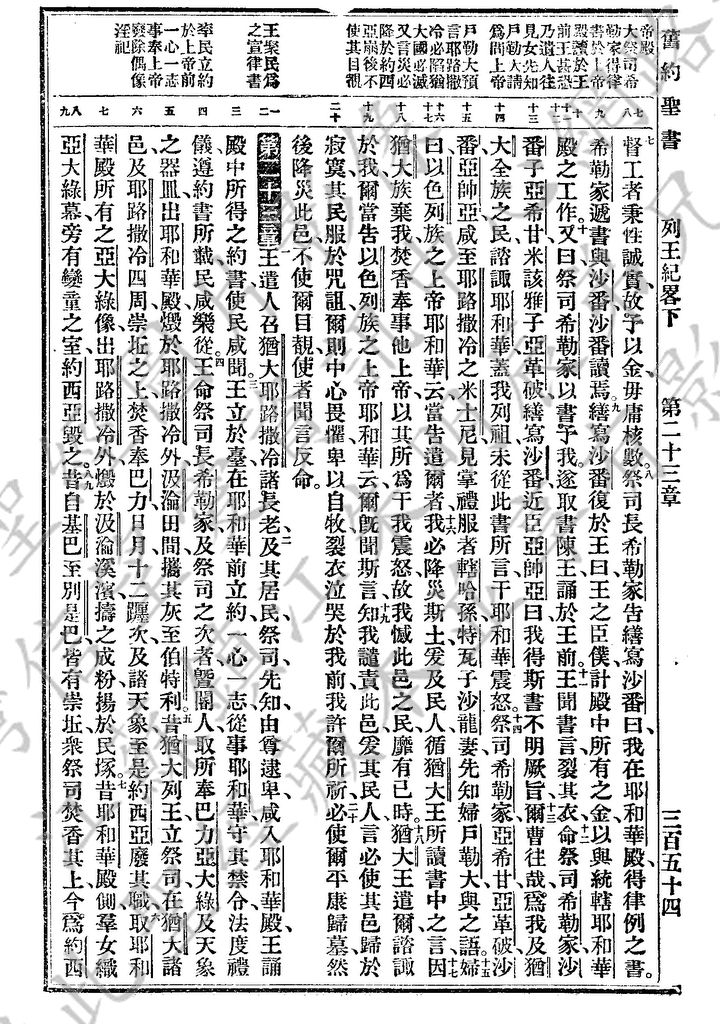 舊約聖書 列王紀畧下 第二十三章 三百五十四
帝殿
大祭司希
勒家得律
書於上帝
殿讀於王
前王甚恐
乃遣人往
見女先知
戶勒大請
問上帝
戶勒大預
言耶路撒
冷必陷猶
大國必滅
又言災必
降於約西
亞崩後不
使其目覩
王衆民爲
之宣律書
率民立約
於上帝前
一心一志
事奉上帝
發除偶像
淫祀
七
督工者秉性誠實故予以金毋庸核數八祭司長希勒家告繕寫沙番曰我在耶和華殿得律例之書
希勒家遞書與沙番沙番讀焉九繕寫沙番復於王曰王之臣僕計殿中所有之金以與統轄耶和華
殿之工作十又曰祭司希勒家以書予我遂取書陳王誦於王前十一王聞書言裂其衣十二命祭司希勒家沙
番子亞希甘米該雅子亞革破繕寫沙番近臣亞帥亞曰十三我得斯書不明厥旨爾曹往哉爲我及猶
大全族之民諮諏耶和華蓋我列祖未從此書所言干耶和華震怒十四祭司希勒家亞希甘亞革破沙
番亞帥亞咸至耶路撒冷之米士尼見掌禮服者轄哈孫特瓦子沙龍妻先知婦戶勒大與之語十五婦
曰以色列族之上帝耶和華云當告遣爾者十六我必降災斯土爰及民人循猶大王所讀書中之言十七因
猶大族棄我焚香奉事他上帝以其所爲干我震怒故我憾此邑之民靡有已時十八猶大王遣爾諮諏
於我爾當告以色列族之上帝耶和華云爾旣聞斯言十九知我譴責此邑爰其民人言必使其邑歸於
寂寞其民服於咒詛爾則中心畏懼卑以自牧裂衣泣哭於我前我許爾所祈二十必使爾平康歸墓然
後降災此邑不使爾目覩使者聞言反命。
第二十三章 一王遣人召猶大耶路撒冷諸長老二及其居民祭司先知由尊逮卑咸入耶和華殿王誦
殿中所得之約書使民咸聞三王立於臺在耶和華前立約一心一志從事耶和華守其禁令法度禮
儀遵約書所載民咸樂從四王命祭司長希勒家及祭司之次者曁閽人取所奉巴力亞大綠及天象
之器皿出耶和華殿燬於耶路撒冷外汲淪田間攜其灰至伯特利五昔猶大列王立祭司在猶大諸
邑及耶路撒冷四周崇坵之上焚香奉巴力日月十二躔次及諸天象至是約西亞廢其職六取耶和
華殿所有之亞大綠像出耶路撒冷外燬於汲淪溪濱擣之成粉揚於民塚七昔耶和華殿側羣女織
亞大綠幕旁有孌童之室約西亞毀之八九昔自基巴至別是巴皆有崇坵衆祭司焚香其上今爲約西